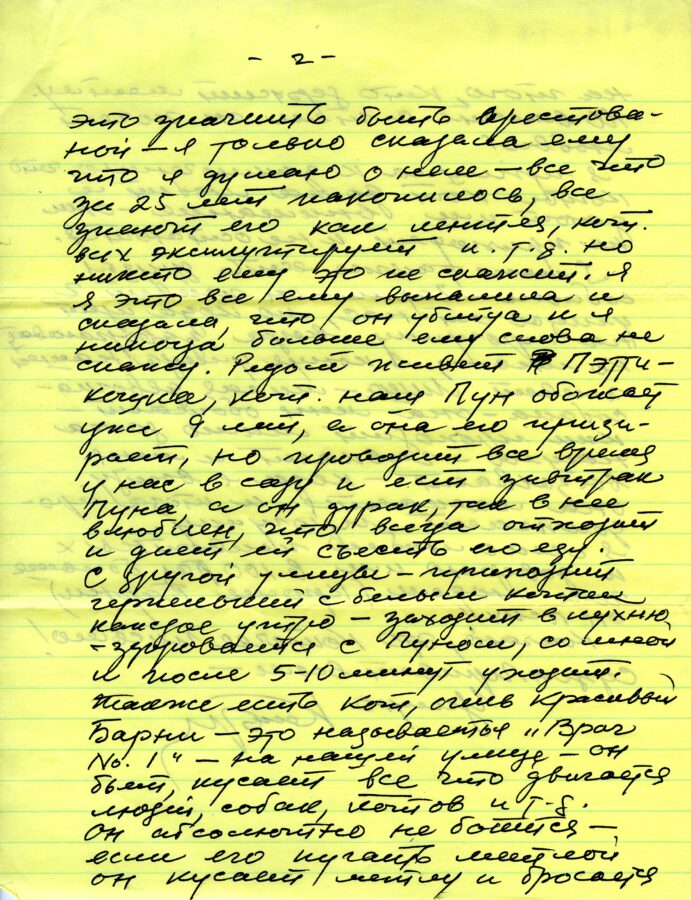 - 2 -
это значить быть арестова-
ной - я только сказала ему
что я думаю о нем - все что
за 25 лет накопилось, все
знают его как лентяя, кот.
всех эксплуктирует и. т. д. но
никто ему это не скажит. Я
я это все ему выпалила и
сказала, что он убийца и я
никогда больше ему слова не
скажу. Рядом живет Пэтти-
кошка, кот. наш Пун обожает
уже 9 лет, а она его призи-
рает, но проводит все время
у нас в саду и ест завтрак
Пуна, а он дурак, так в нее
влюблен, что всегда отходит
и дает ей съесть его еду.
С другой улицы - приходит
черненький с белым котик
каждое утро - заходит в кухню
- здоровается с Пуном, со мной
и после 5-10 минут уходит.
Также есть кот, очень красивый
Барни - это называеться "Враг
No. 1" - на нашей улице - он
бьет, кусает все что двигается
людей, собак, котов и т. д.
Он абсолютно не боится -
если его пугать метлой
он кусает метлу и бросается